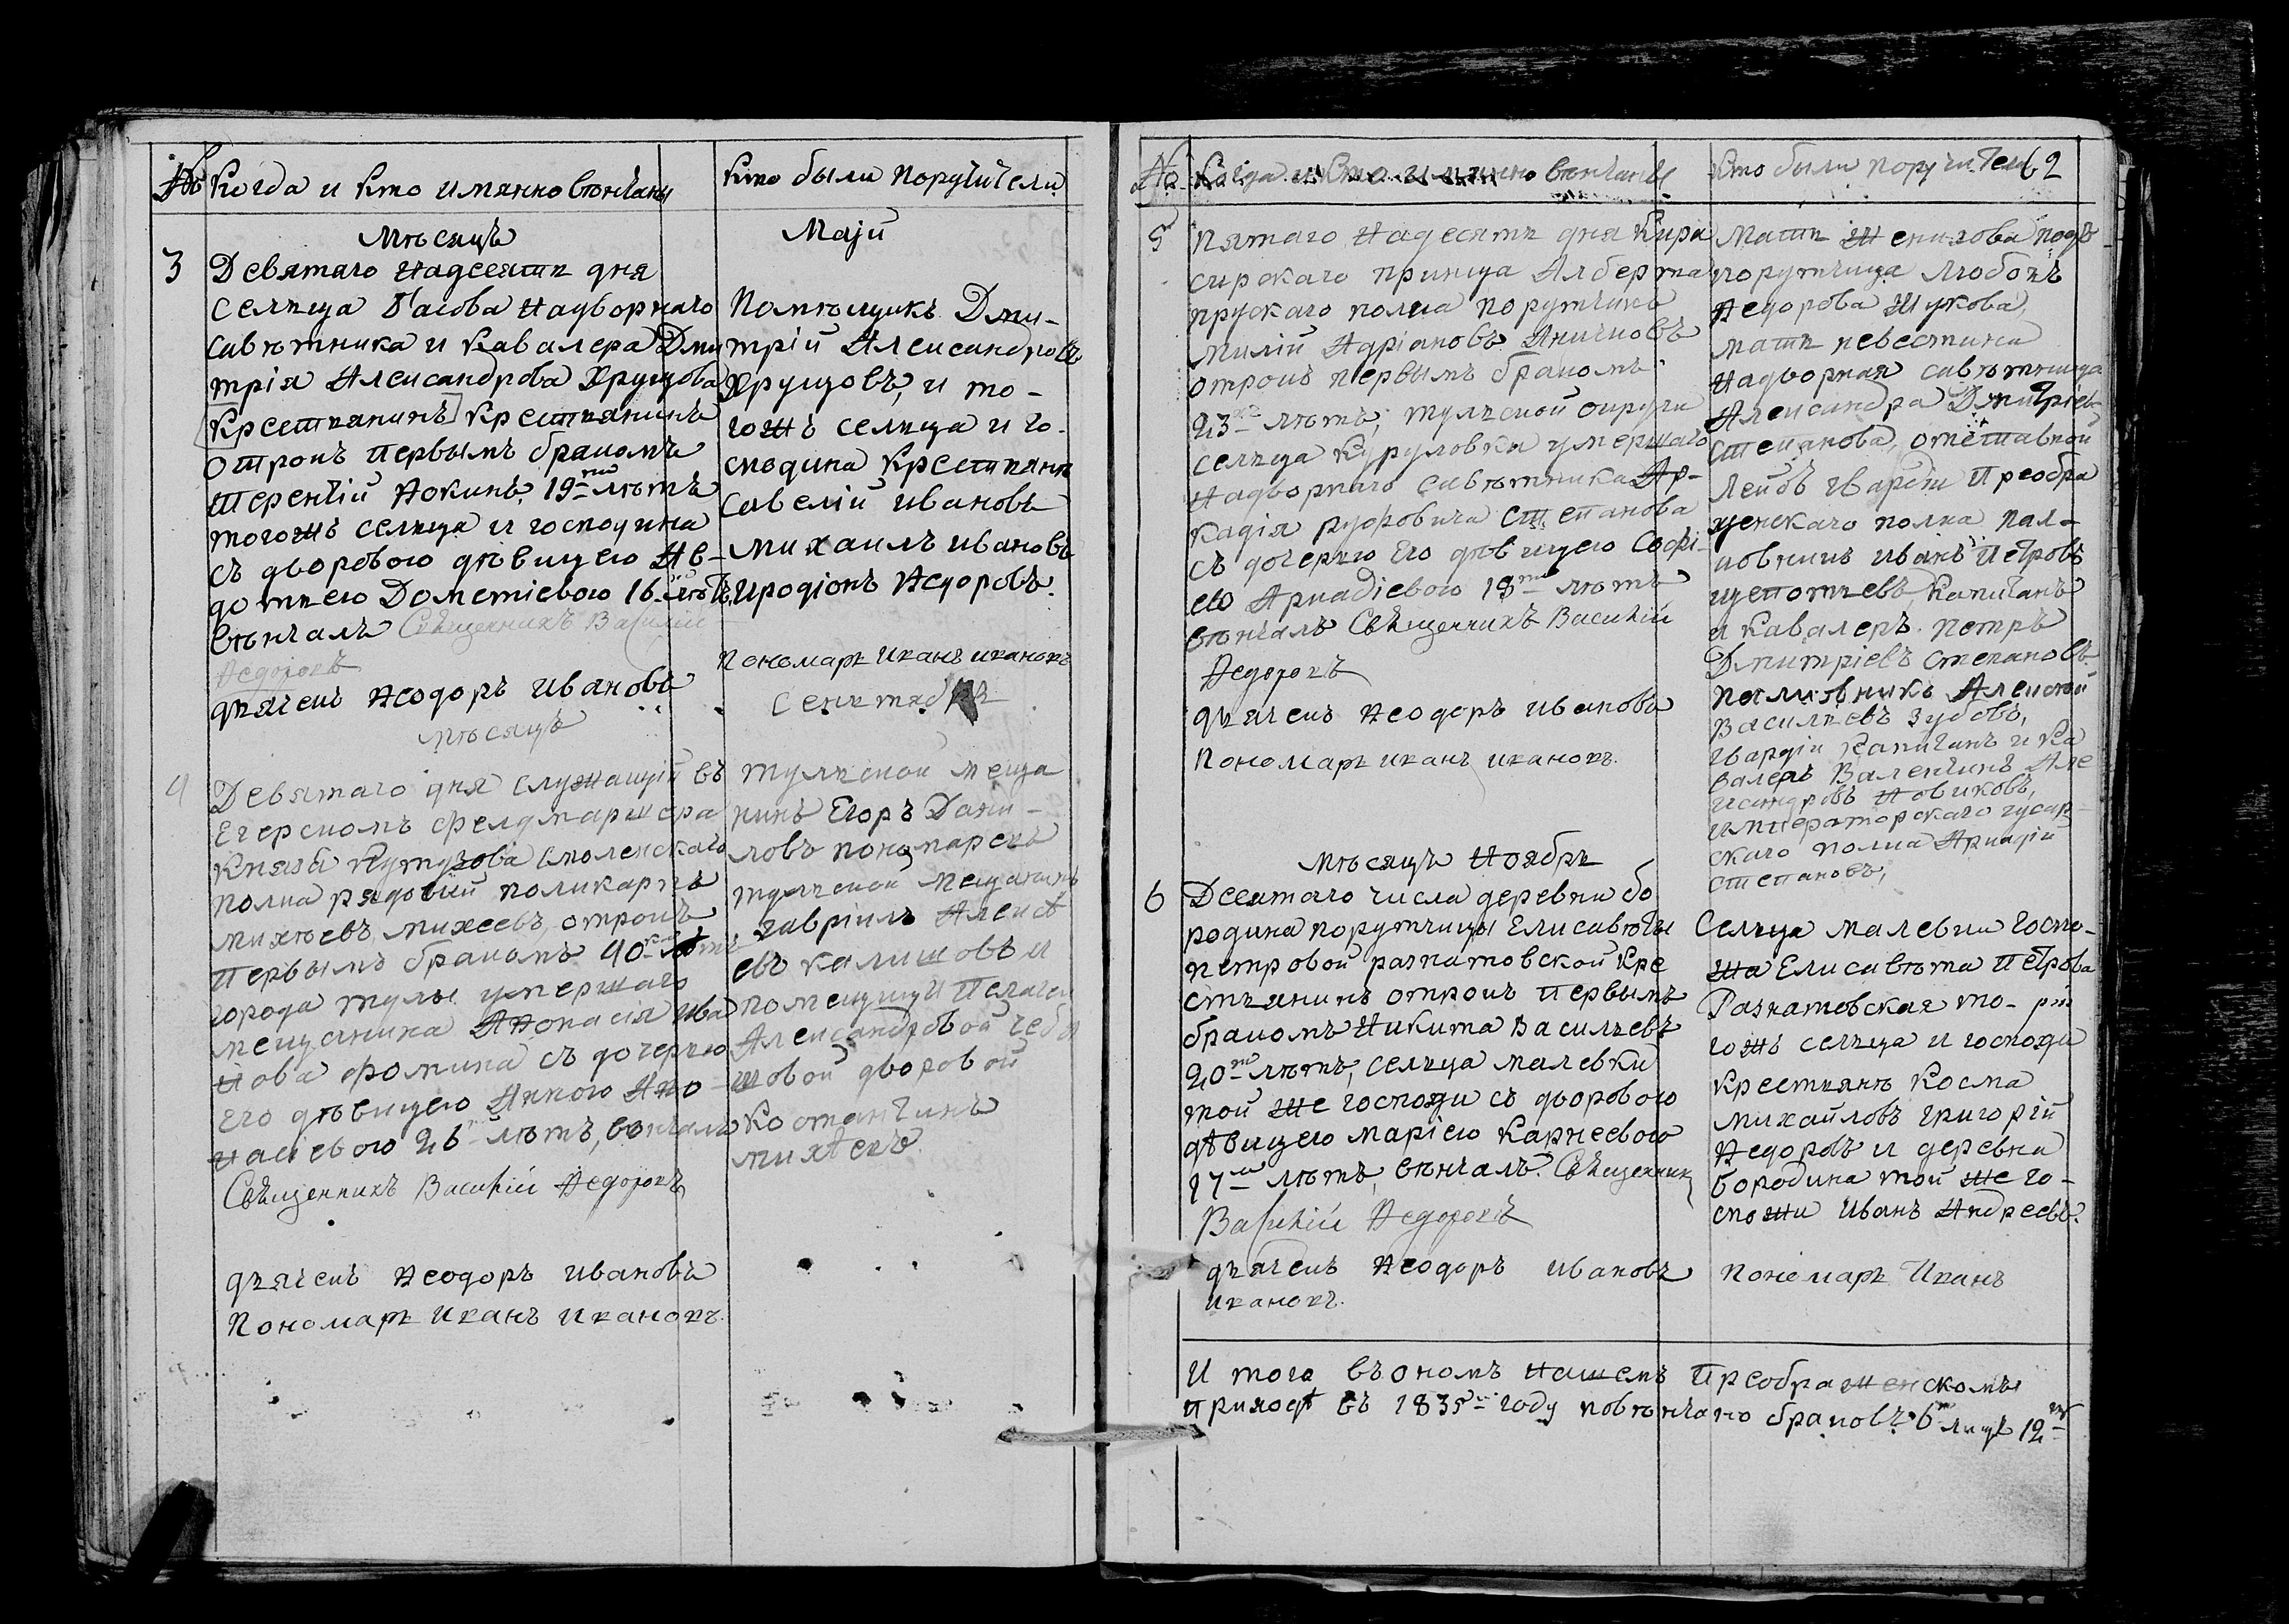 № Когда и кто имянно вѣнчаны
кто были поручители
Мѣсяцъ
Маjй
3 Девятаго надесять дня
селца Басова надворнаго
савѣтника и Кавалера Дми
трія Александрова Хрущова
[крестьянинъ] крестьянинъ
отрокъ первымъ бракомъ
терентій Ѳокинъ 19ти лѣтъ
тогожъ селца и господина
съ дворовою дѣвицею Ав-
дотьею Дометіевою 16 лѣтъ,
вѣнчалъ Священникъ Василій
Ѳедоровъ
дьячекъ Ѳеодоръ Ивановъ
Помѣщикъ Дми-
трій Александровъ
Хрущовъ, и то-
гожъ селца и го-
сподина крестьяня
савелій ивановъ
михаилъ ивановъ
иродіонъ Ѳедоровъ.
Пономарь иванъ ивановъ
мѣсяцъ
Сентябрь
4 Девятаго дня служащій въ
Егерскомъ фелдмаршера
Князя Кутузова Смоленскаго
полка рядовий поликарпъ
михѣевъ михеевъ, отрокъ
первымъ бракомъ 40 лѣтъ
города тулы умершаго
мещанина Аѳонасія ива
нова фомина съ дочерью
его дѣвицею Анною Аѳо-
насіевою 26 лѣтъ, вѣнчалъ
Священникъ Василій Ѳедоровъ
дьячекъ Ѳеодоръ ивановъ
Пономарь иванъ ивановъ.
тулской меща
нинъ Егоръ Дани-
ловъ пономаревъ
тулской мещанинъ
гавріилъ Алексѣ
евъ калишовъ и
помещицы Пелагеи
Александровой чебы
шовой дворовой
Костантинъ
михѣевъ.
№ Когда и кто имянно вѣнчаны
кто были поручители 62
5 Пятаго надесять дня Кира
сирскаго принца Алберта
прускаго полка порутчикъ
милій Адріановъ Аничковъ
отрокъ первымъ бракомъ
23хъ лѣтъ; тулской округи
селца Журуловки умершаго
надворнаго савѣтника Ар-
кадія руфовича Степанова
съ дочерью его дѣвицею Софі-
ею Аркадіевою 18ти лѣтъ
вѣнчалъ Священникъ Василій
Ѳедоровъ
дьячекъ Ѳеодоръ ивановъ
Пономарь иванъ ивановъ.
Мать женихова подъ
порутчица Любовь
Ѳедорова Жукова,
мать невестина
надворная савѣтница
Александра Дмитріев-
степанова, отставной
Лейбъ гвардіи Преобра
женскаго полка пол-
ковникъ иванъ Петровъ
щепотьевъ, Капитанъ
и Кавалеръ Петръ
Дмитріевъ степановъ.
полковникъ Алексѣй
Васильевъ Зубовъ,
гвардіи Капитанъ и Ка
валеръ Валентинъ Але
ксандровъ Новиковъ,
императорскаго гусар-
скаго полка Аркадій
степановъ,
мѣсяцъ Ноябрь
6 Десятаго числа деревни бо
родина порутчицы Елисавѣты
петровой разнатовской кре
стьянинъ отрокъ первымъ
бракомъ никита Васильевъ
20ти лѣтъ, селца малевки
той же госпожи съ дворовою
дѣвицею маріею Карнеевою
17ти лѣтъ, вѣнчалъ. Священникъ
Василій Ѳедоровъ
дьячекъ Ѳеодоръ ивановъ
Пономарь Иванъ
ивановъ.
Селца малевки госпо-
жа Елисавѣта Петрова
Разнатовская то-
гожъ селца и госпожи
крестьянѣ косма
михайловъ григорій
Ѳедоровъ и деревни
бородина той же го-
спожи иванъ Андреевъ.
И того въ ономъ нашемъ Преображенскомъ
приходѣ въ 1835м году повѣнчано браковъ 6 лицъ 12ть